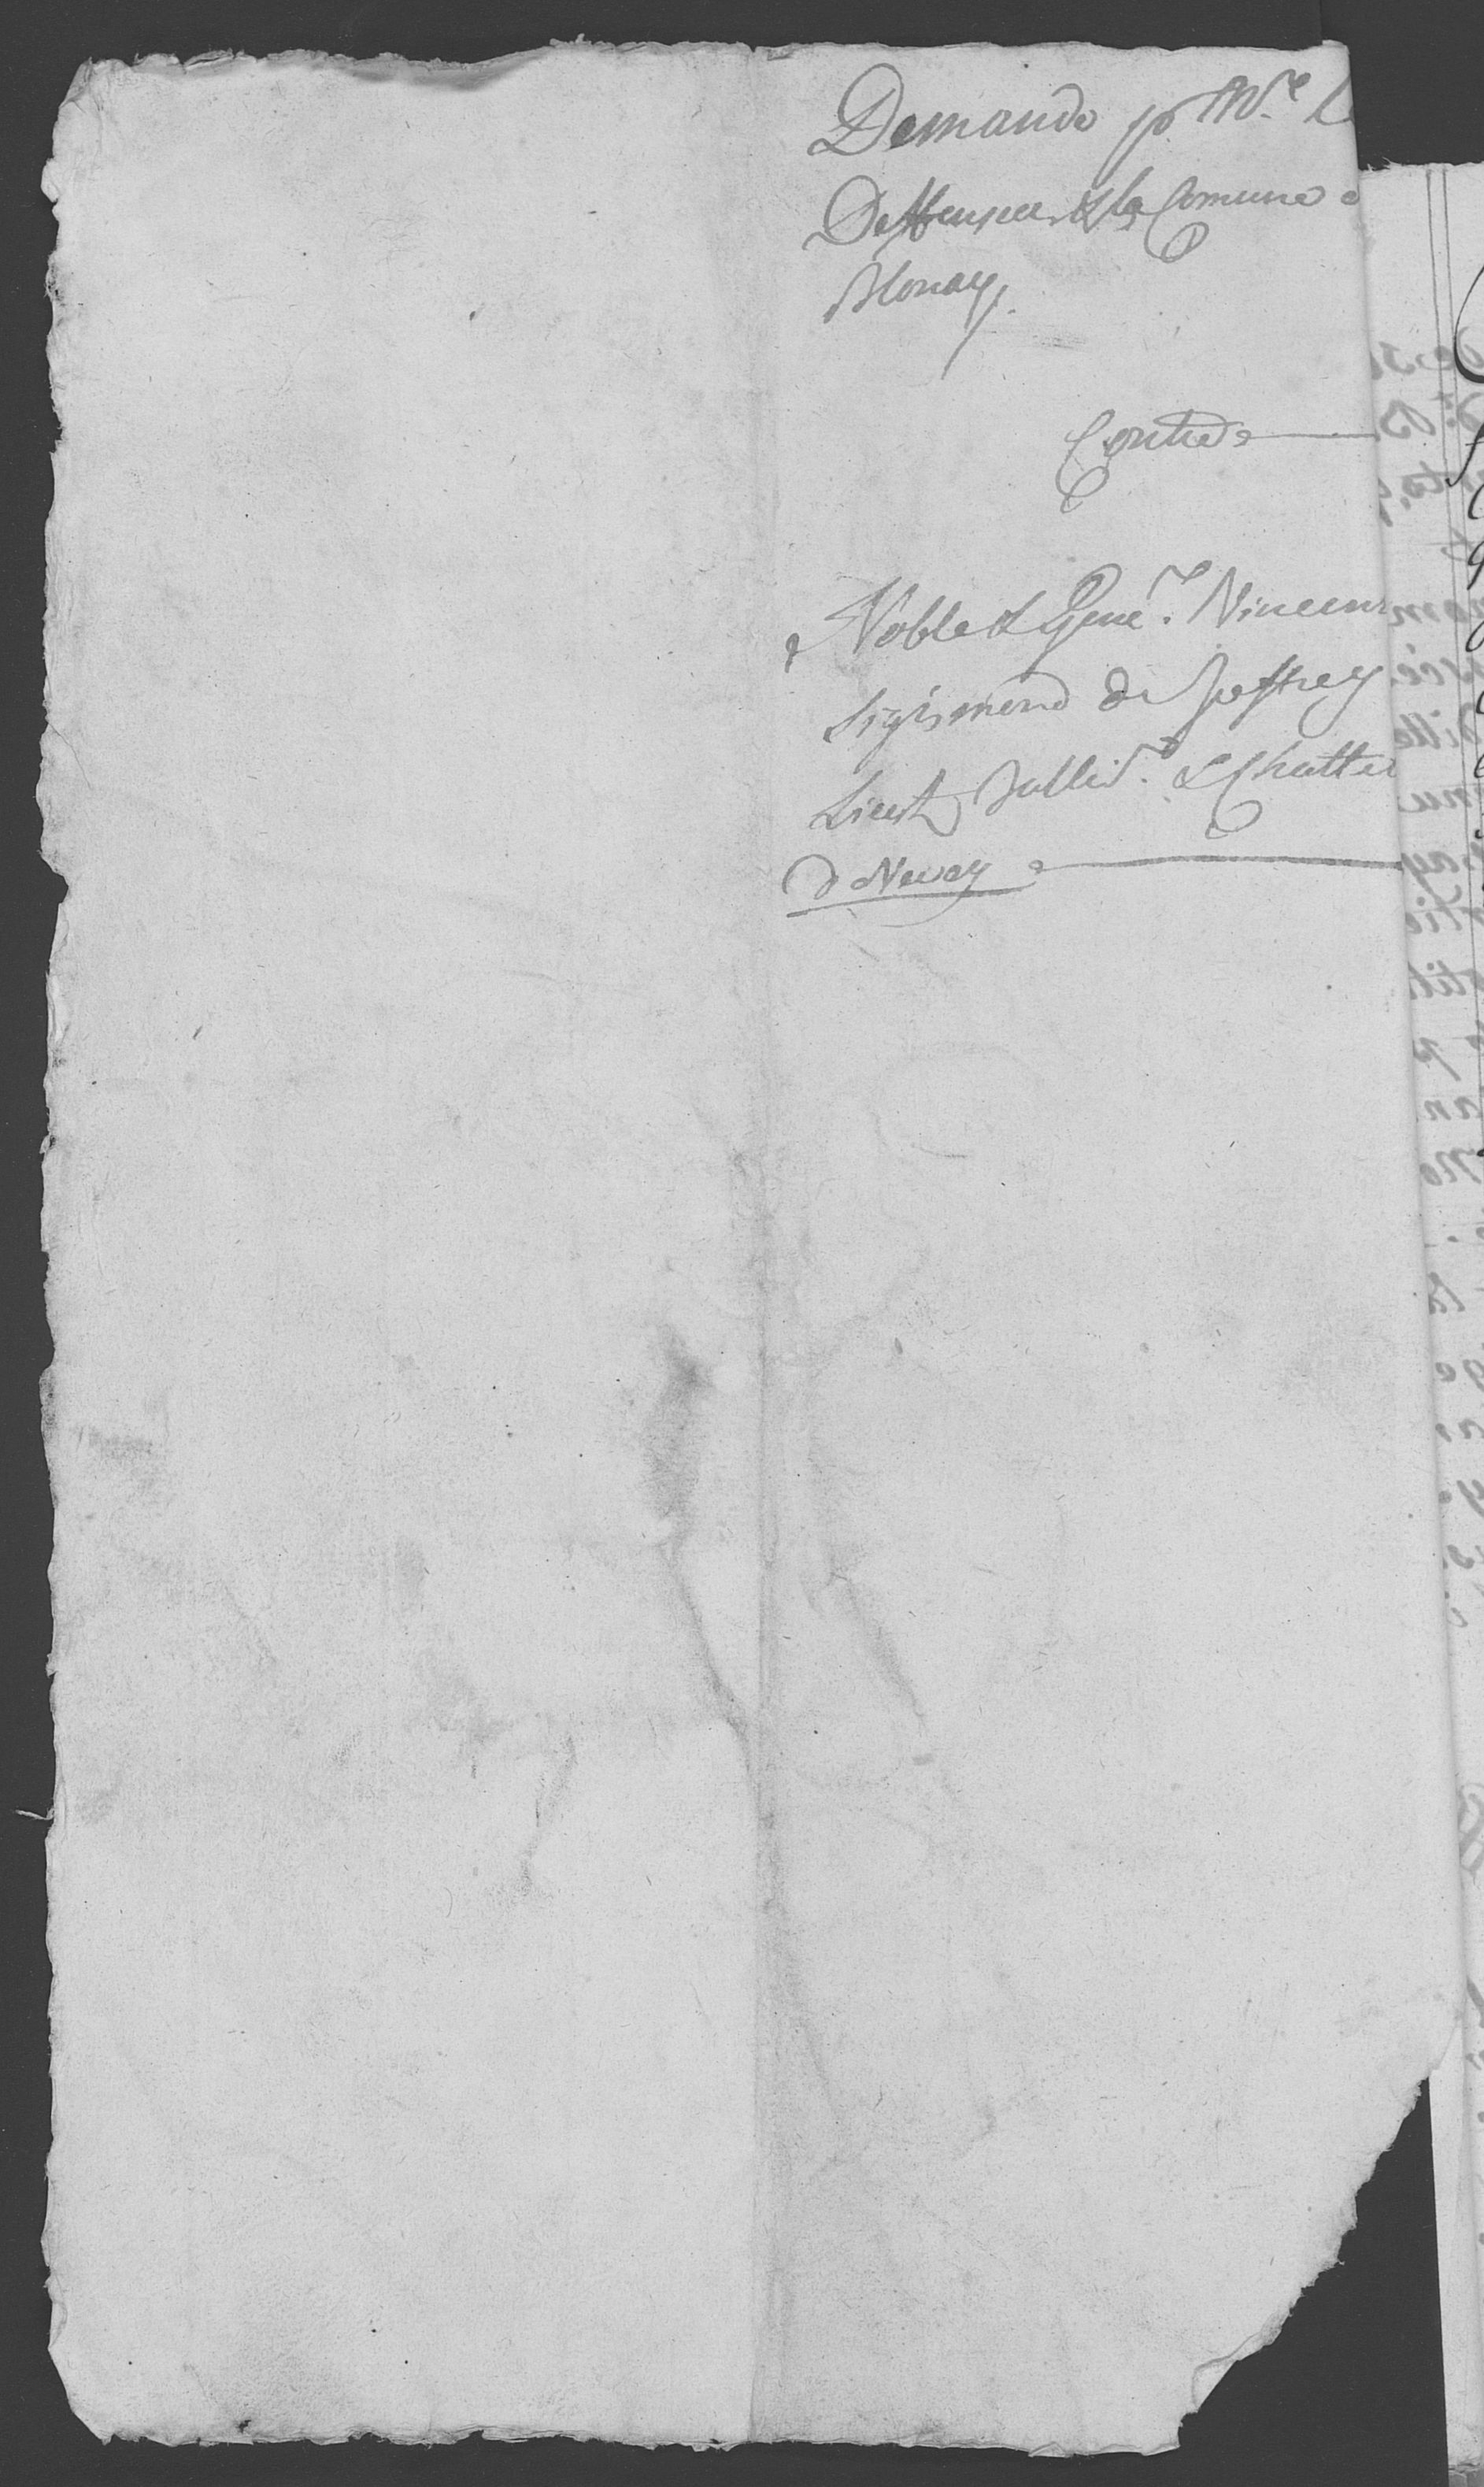 Demande p Mr.e
Deffenseur de la Comune
Blonay.
Contre
Noble & Gene.x Vincent
Sigismond de Joffrey
Lieut. Balliv.l & Chatte
d Vevey